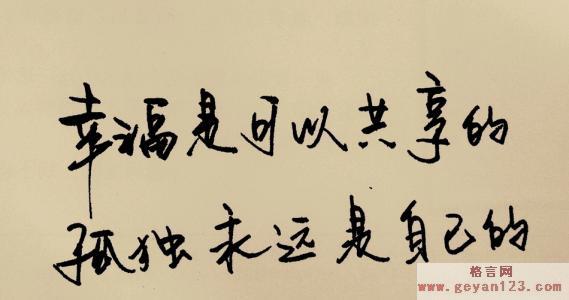 幸福是可以共享的
孤独永远是自己的
格言网
www.geyan123.com